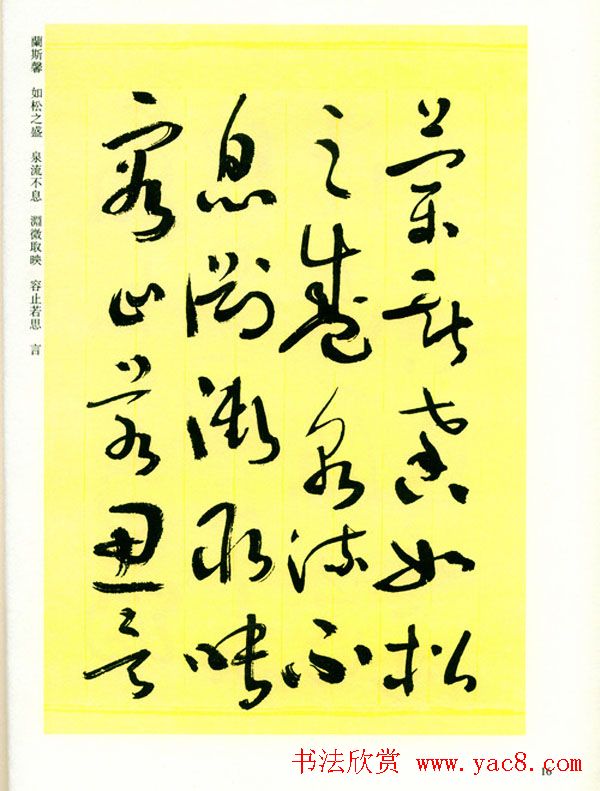 蘭斯馨如松
之盛泉流不
息淵澂取映
容止若思言
蘭斯馨　如松之盛　泉流不息　淵微取映　容止若思　言
书法欣赏 www.yac8.com
16